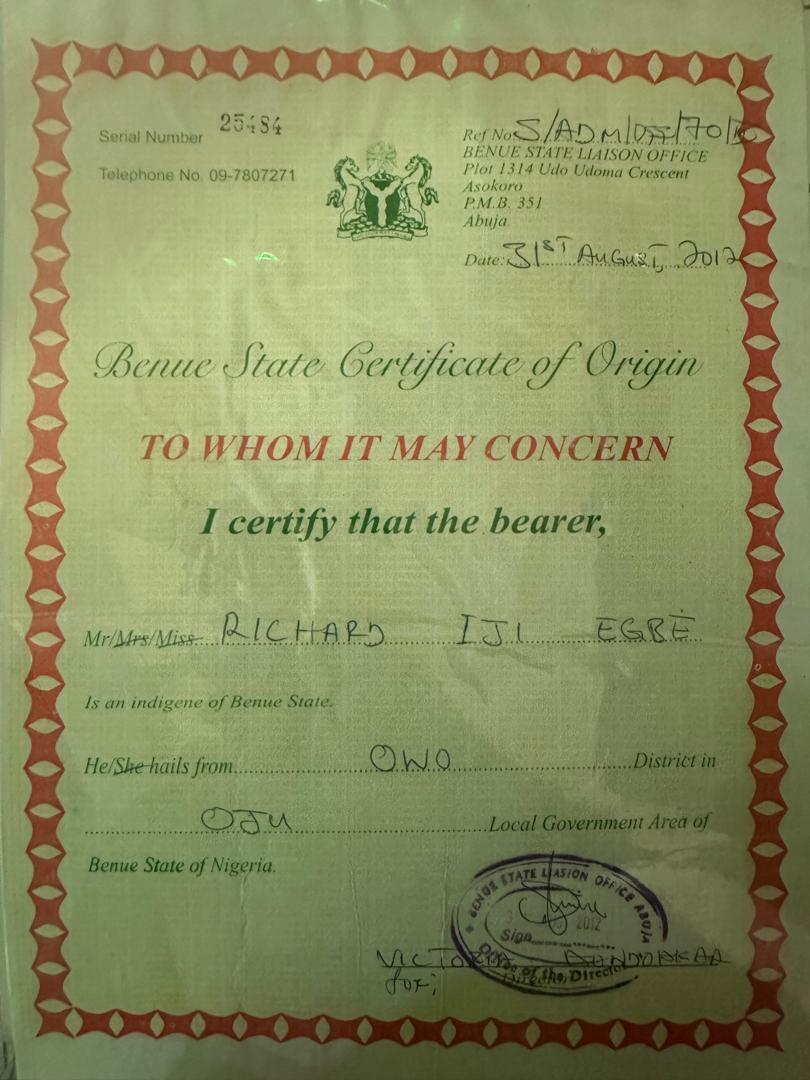 Serial Number 25484
Telephone No. 09-7807271
Ref No. S/ADM/
BENUE STATE LIAISON OFFICE
Plot 1314 Udo Udoma Crescent
Asokoro
P.M.B. 351
Abuja.
Date: 31ST AUGUST, 2012
Benue State Certificate of Origin
TO WHOM IT MAY CONCERN
I certify that the bearer,
Mr/Mrs/Miss RICHARD IJI EGBE
Is an indigene of Benue State.
He/She hails from OWO District in
OJU Local Government Area of
Benue State of Nigeria.
BENUE STATE LIASION OFFICE ABUJA
2012
Sign
Office of the Director
VICTORIA
for;